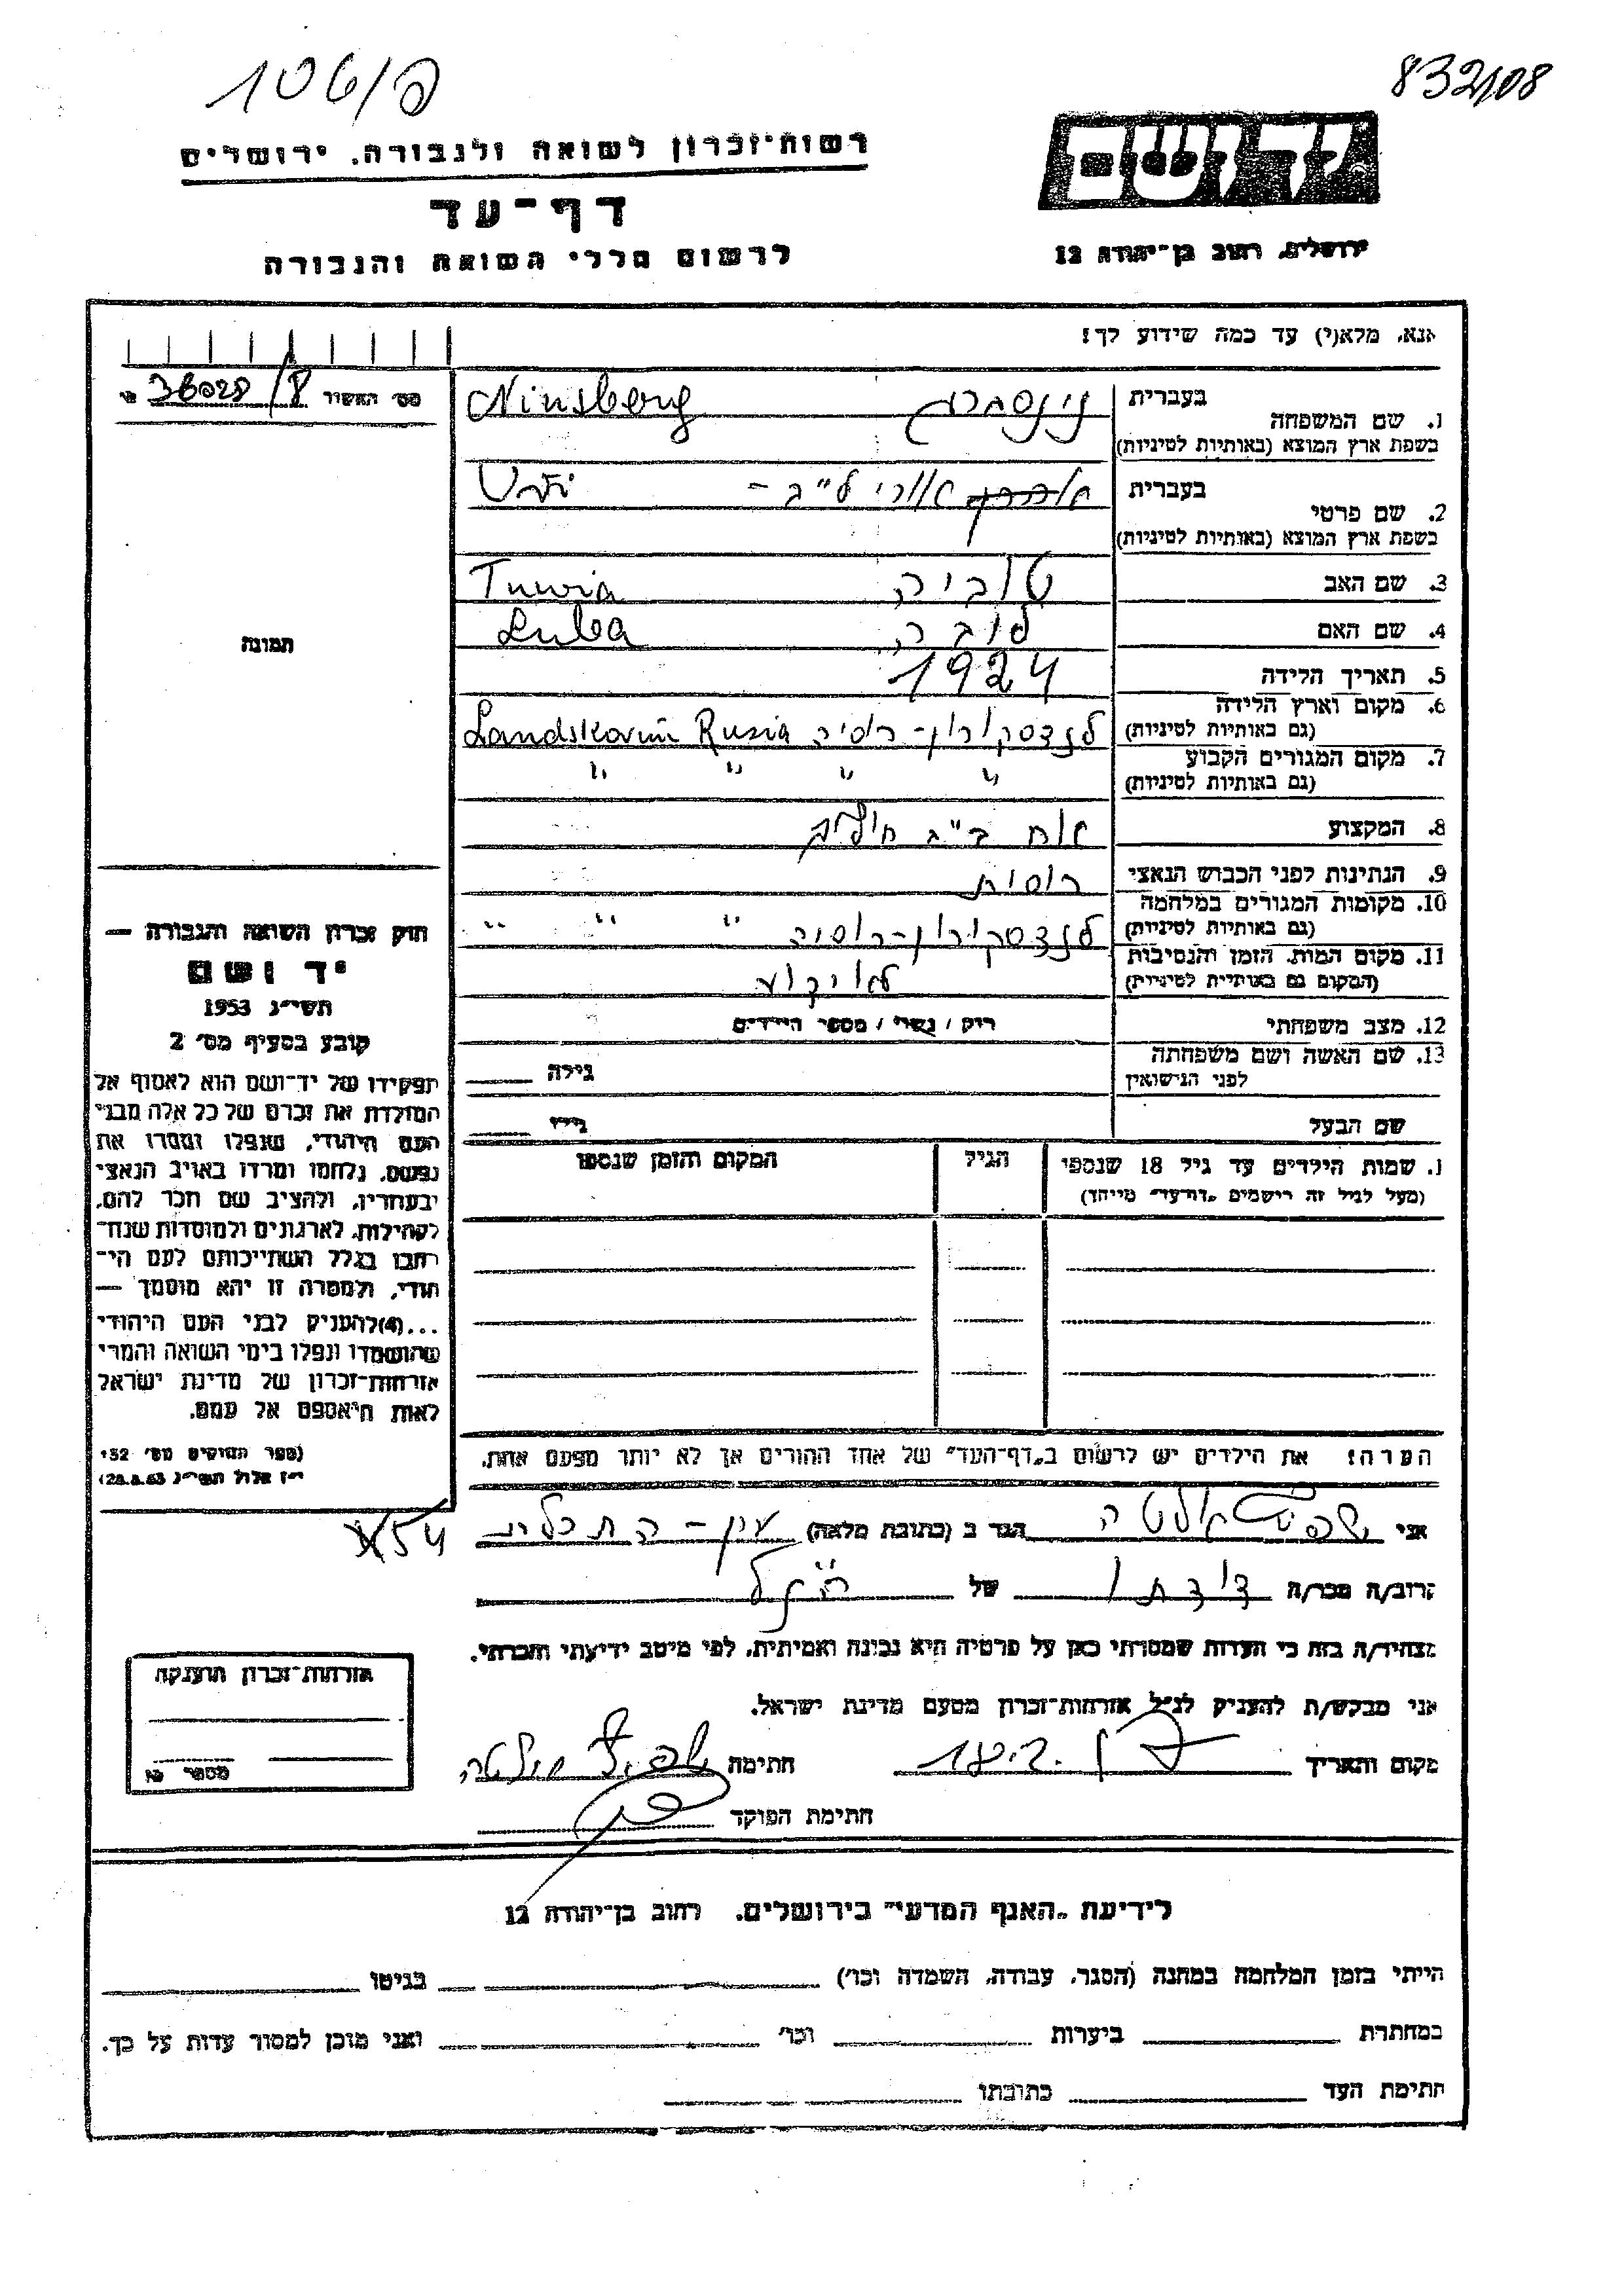 106/פ
832/108
רשות-זכרון לשואה ולגבורה, ירושלים
יד ושם
דף-עד
לרשום חללי השואה והגבורה
ירושלים, רחוב בן-יהודה 12
אנא, מלא(י) עד כמה שידוע לך!
מס' האשור 36028/8
1. שם המשפחה בעברית
בשפת ארץ המוצא (באותיות לטיניות)
Ninsberg
2. שם פרטי בעברית אורי
בשפת ארץ המוצא (באותיות לטיניות)
3. שם האב טוביה Tuwia
4. שם האם לובה Luba
5. תאריך הלידה 1924
6. מקום וארץ הלידה לנדסקורון-רוסיה Landskorun Rusia
(גם באותיות לטיניות)
7. מקום המגורים הקבוע " " " "
(גם באותיות לטיניות)
8. המקצוע
9. הנתינות לפני הכבוש הנאצי רוסית
10. מקומות המגורים במלחמה לנדסקורון-רוסיה " " "
(גם באותיות לטיניות)
11. מקום המות, הזמן והנסיבות לא ידוע
(המקום גם באותיות לטיניות)
12. מצב משפחתי רוק / נשוי / מספר הילדים
13. שם האשה ושם משפחתה גילה
לפני הנישואין
שם הבעל גילו
תמונה
חוק זכרון השואה והגבורה —
יד ושם
תשי"ג 1953
קובע בסעיף מס' 2
תפקידו של יד-ושם הוא לאסוף אל
המולדת את זכרם של כל אלה מבני
העם היהודי, שנפלו ומסרו את
נפשם, נלחמו ומרדו באויב הנאצי
ובעוזריו, ולהציב שם וזכר להם,
לקהילות, לארגונים ולמוסדות שנח-
רבו בגלל השתייכותם לעם הי-
הודי, ולמטרה זו יהא מוסמך —
...(4)להעניק לבני העם היהודי
שהושמדו ונפלו בימי השואה והמרי
אזרחות-זכרון של מדינת ישראל
לאות היאספם אל עמם.
(ספר החוקים מס' 132
י"ז אלול תשי"ג 28.8.53)
1. שמות הילדים עד גיל 18 שנספו הגיל המקום והזמן שנספו
(מעל לגיל זה רושמים "דף-עד" מיוחד)
הערה! את הילדים יש לרשום ב"דף-העד" של אחד ההורים אך לא יותר מפעם אחת.
54
אני הגר ב (כתובת מלאה) עין-התכלת
קרוב/ה מכר/ה דודתו של הנ"ל
מצהיר/ה בזה כי העדות שמסרתי כאן על פרטיה היא נכונה ואמיתית, לפי מיטב ידיעתי והכרתי.
אני מבקש/ת להעניק לנ"ל אזרחות-זכרון מטעם מדינת ישראל.
מקום ותאריך חתימה
חתימת הפוקד
אזרחות-זכרון הוענקה
מספר
לידיעת "האגף המדעי" בירושלים, רחוב בן-יהודה 12
הייתי בזמן המלחמה במחנה (הסגר, עבודה, השמדה וכו') בגיטו
במחתרת ביערות וכו' ואני מוכן למסור עדות על כך.
חתימת העד כתובתו